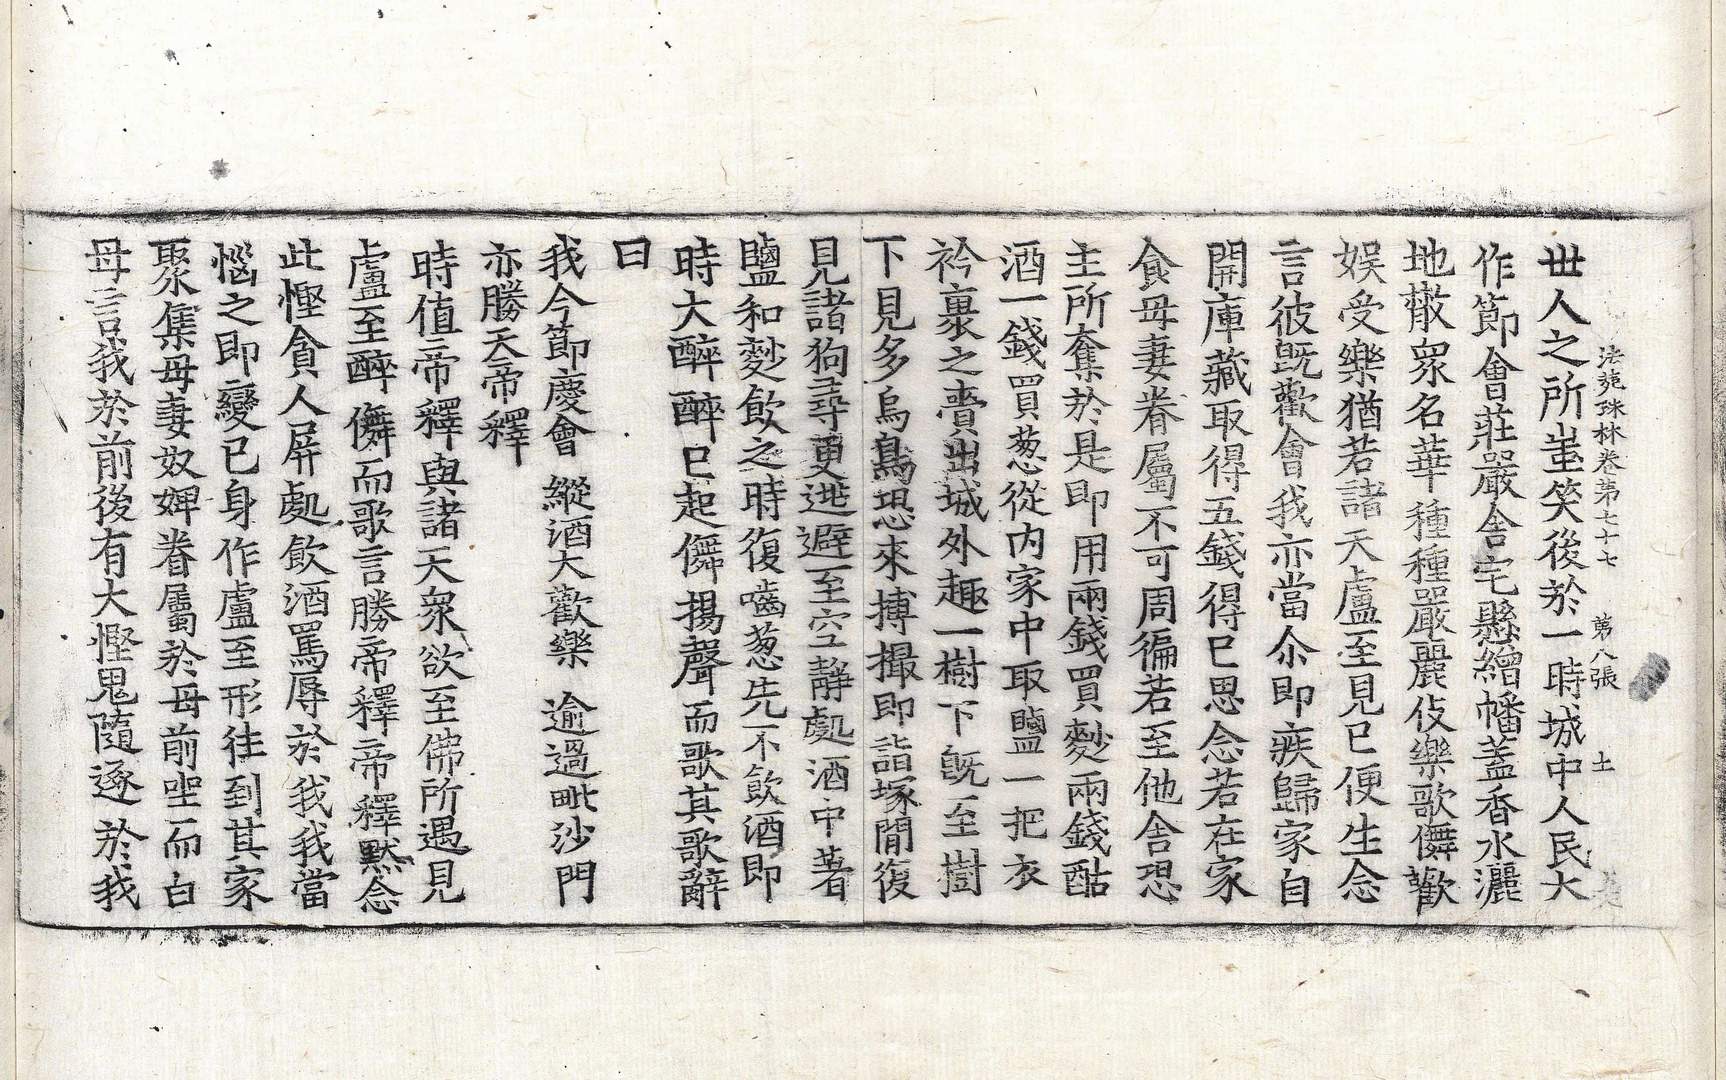 法苑珠林卷第七十七 第八張 土
世人之所蚩笑後於一時城中人民大
作節會莊嚴舍宅懸繒幡蓋香水灑
地散衆名華種種嚴麗伎樂歌儛歡
娛受樂猶若諸天盧至見已便生念
言彼旣歡會我亦當尒即疾歸家自
開庫藏取得五錢得已思念若在家
食母妻眷屬不可周徧若至他舍恐
主所奪於是即用兩錢買麨兩錢酤
酒一錢買葱從內家中取鹽一把衣
衿裹之賷出城外趣一樹下旣至樹
下見多烏鳥恐來搏撮即詣塚閒復
見諸狗尋更逃避至空靜處酒中著
鹽和麨飮之時復嚙葱先不飮酒即
時大醉醉已起儛揚聲而歌其歌辭
曰
我今節慶會 縱酒大歡樂 逾過毗沙門
亦勝天帝釋
時値帝釋與諸天衆欲至佛所遇見
盧至醉儛而歌言勝帝釋帝釋默念
此慳貪人屏處飮酒罵辱於我我當
惱之即變已身作盧至形往到其家
聚集母妻奴婢眷屬於母前坐而白
母言我於前後有大慳鬼隨逐於我